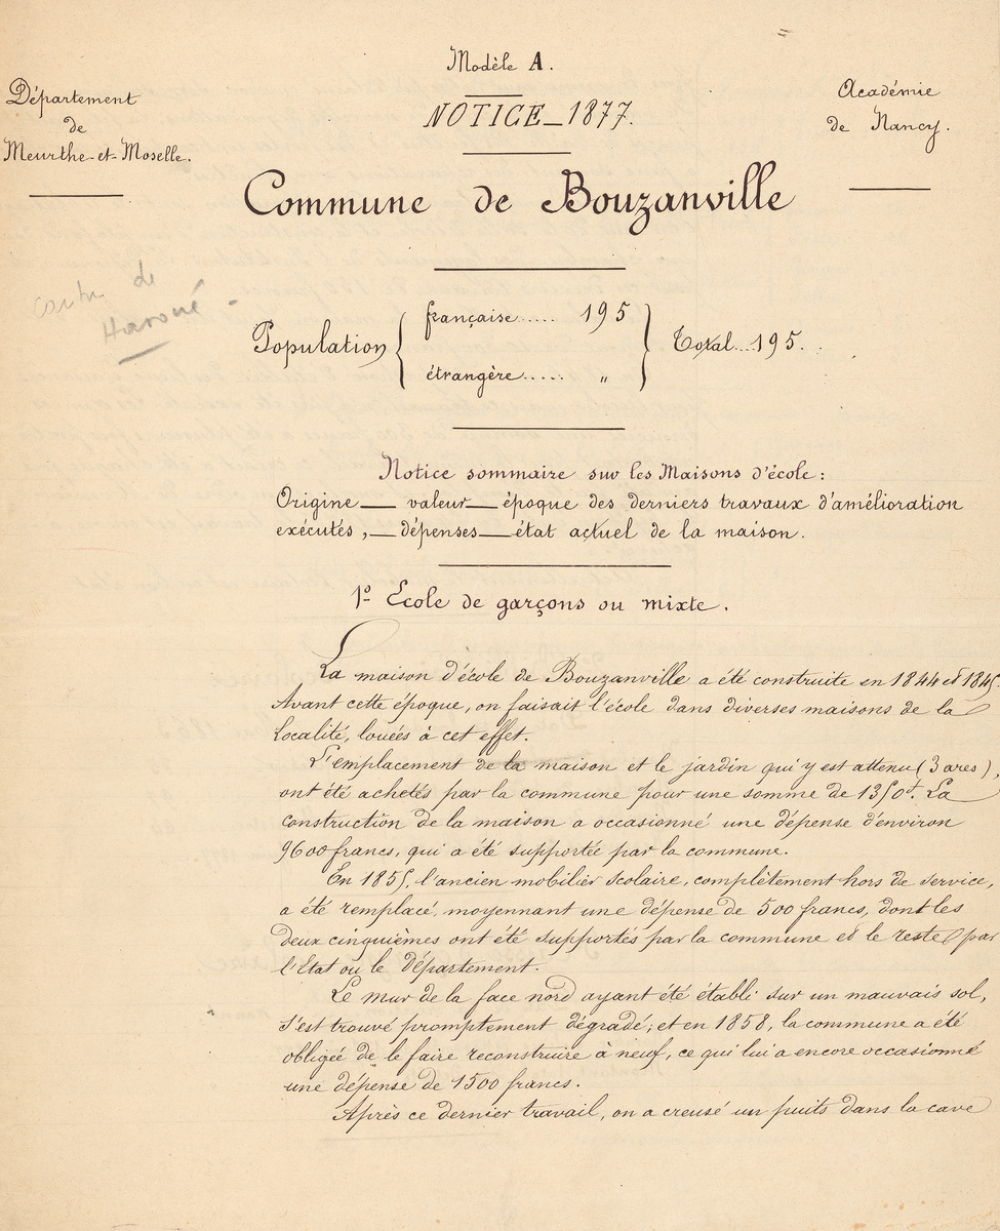 Modèle A.
Département
de
Meurthe-et-Moselle.
NOTICE_1877.
Académie
de Nancy.
Commune de Bouzanville
de
Haroué
Population { française..... 195 } Total...195.
étrangère..... „
Notice sommaire sur les Maisons d'école:
Origine__ valeur__ époque des derniers travaux d'amélioration
exécutés,__ dépenses__ état actuel de la maison.
1º Ecole de garçons ou mixte.
La maison d'école de Bouzanville a été construite en 1844 et 1845.
Avant cette époque, on faisait l'école dans diverses maisons de la
localité, louées à cet effet.
L'emplacement de la maison et le jardin qui y est attenu (3 ares),
ont été achetés par la commune pour une somme de 1350f. La
construction de la maison a occasionné une dépense d'environ
9600 francs, qui a été supportée par la commune.
En 1855, l'ancien mobilier scolaire, complètement hors de service,
a été remplacé, moyennant une dépense de 500 francs, dont les
deux cinquièmes ont été supportés par la commune et le reste par
l'Etat ou le département.
Le mur de la face nord ayant été établi sur un mauvais sol,
s'est trouvé promptement dégradé; et en 1858, la commune a été
obligée de le faire reconstruire à neuf, ce qui lui a encore occasionné
une dépense de 1500 francs.
Après ce dernier travail, on a creusé un puits dans la cave